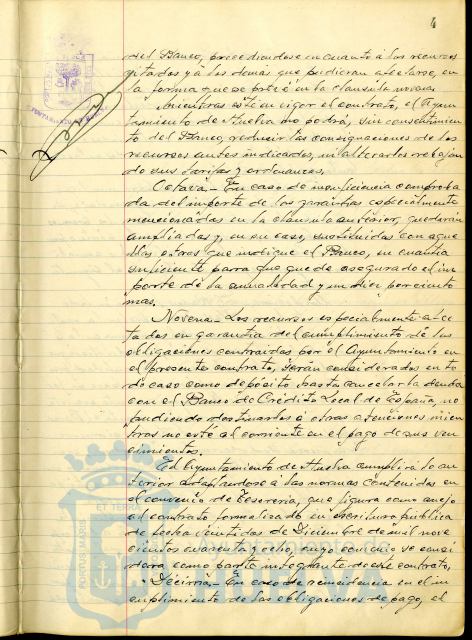 4
del Banco, procediendose en cuanto á los recursos
citados y á los demas que pudieran afectarse, en
la forma que se prevé en la clausula novena.
Mientras esté en vigor el contrato, el Ayun-
tamiento de Huelva no podrá, sin consentimien-
to del Banco, reducir las consignaciones de los
recursos antes indicados, ni alterarlos rebajan-
do sus tarifas y ordenanzas.
Octava.- En caso de insuficiencia comproba-
da del importe de las garantías especialmente
mencionadas en la clausula anterior, quedarán
ampliadas y, en su caso, sustituidas con aque-
llas otras que indique el Banco, en cuantía
suficiente para que quede asegurado el im-
porte de la anualidad y un diez por ciento
mas.
Novena.- Los recursos especialmente afec-
tados en garantía del cumplimiento de las
obligaciones contraidas por el Ayuntamiento en
el presente contrato, serán considerados en to-
do caso como depósito hasta cancelar la deuda
con el Banco de Crédito Local de España, no
pudiendo destinarlos á otras atenciones mien-
tras no esté al corriente en el pago de sus ven-
cimientos.
El Ayuntamiento de Huelva cumplirá lo an-
terior adaptandose á las normas contenidas en
el convenio de Tesorería, que figura como anejo
al contrato formalizado en escritura pública
de fecha veintidos de Diciembre de mil nove-
cientos cuarenta y ocho, cuyo convenio se consi-
dera como parte integrante de este contrato.
Décima.- En caso de reincidencia en el in-
cumplimiento de las obligaciones de pago, el
PORTUS MARIS
ET TERRAE